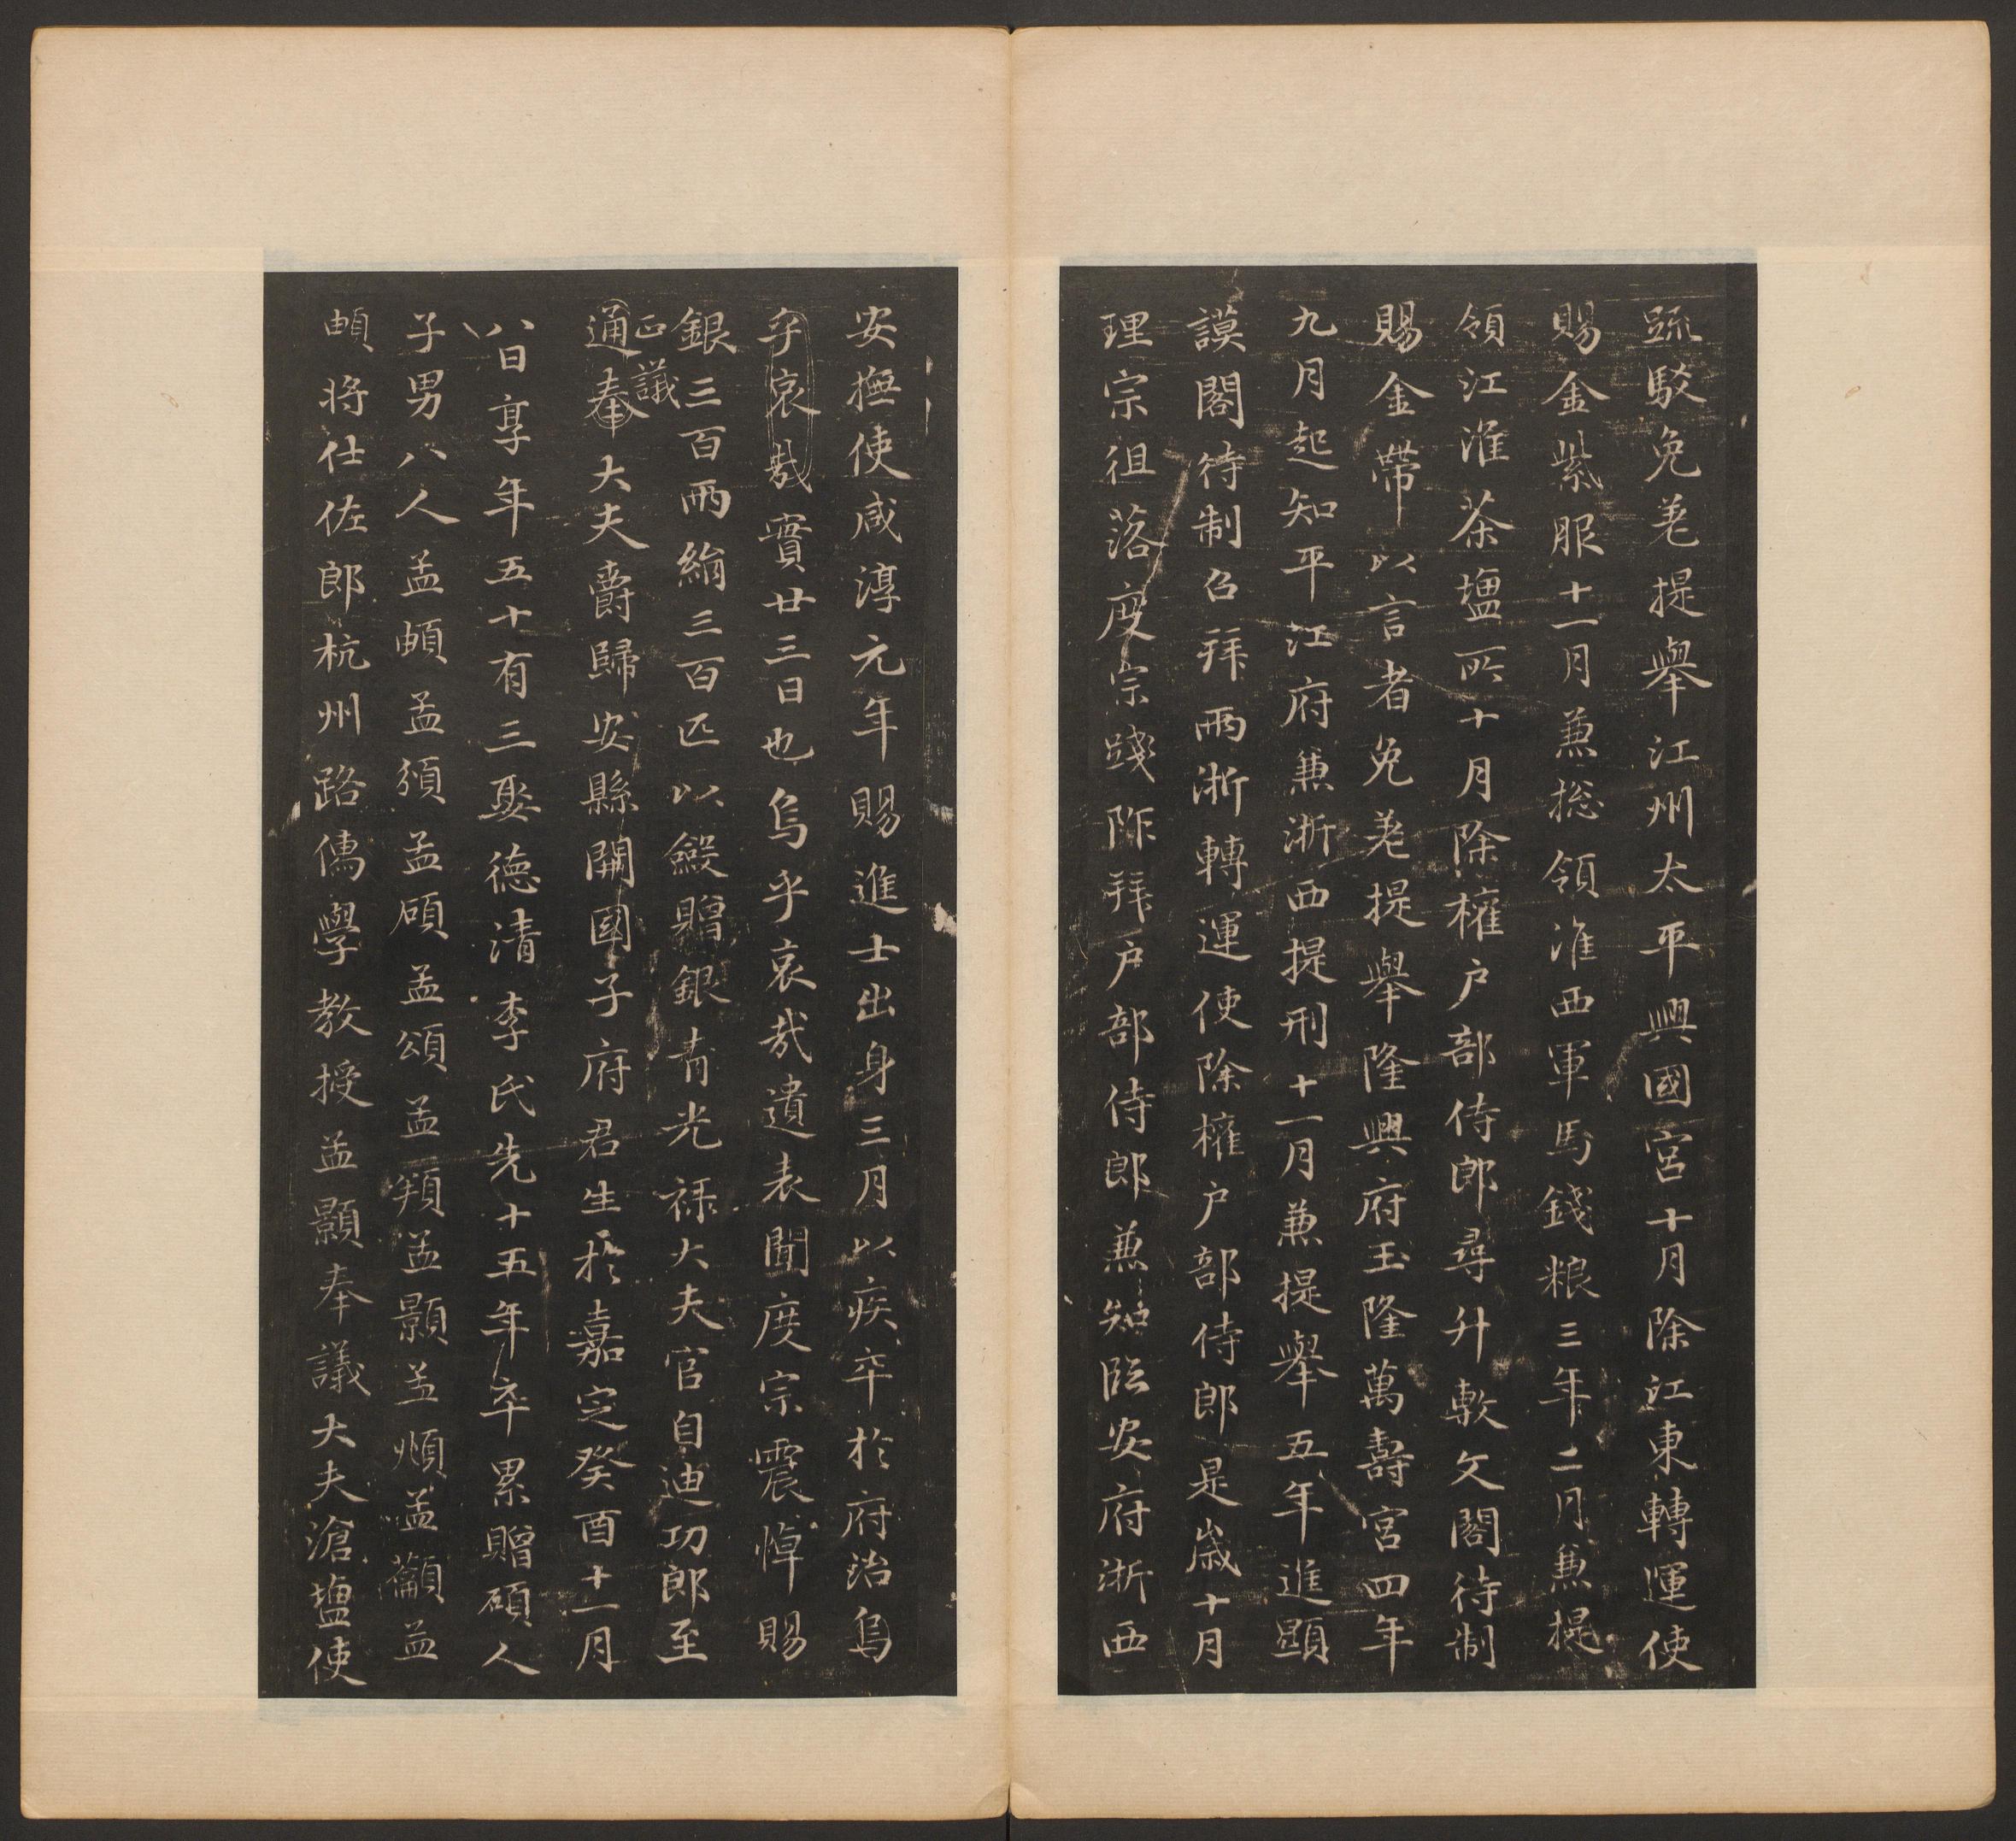 疏駮免差提舉江州太平興國宮十月除江東轉運使
賜金紫服十一月兼揔領淮西軍馬錢粮三年二月兼提
領江淮茶塩所十月除權户部侍郎尋升敷文閣待制
賜金帶以言者免差提舉隆興府玉隆萬壽宮四年
九月起知平江府兼浙西提刑十一月兼提舉五年進顯
謨閣待制召拜兩浙轉運使除權户部侍郎是歲十月
理宗徂落度宗踐阼拜户部侍郎兼知臨安府浙西
安撫使咸淳元年賜進士出身三月以疾卒於府治烏
乎哀哉實廿三日也烏乎哀哉遺表聞度宗震悼賜
銀三百兩絹三百匹以斂贈銀青光祿大夫官自迪功郎至
正議
通奉大夫爵歸安縣開國子府君生於嘉定癸酉十一月
八日享年五十有三娶德清李氏先十五年卒累贈碩人
子男八人孟頔孟須孟碩孟頌孟頖孟顥孟順孟籲孟
頔將仕佐郎杭州路儒學教授孟顥奉議大夫滄塩使